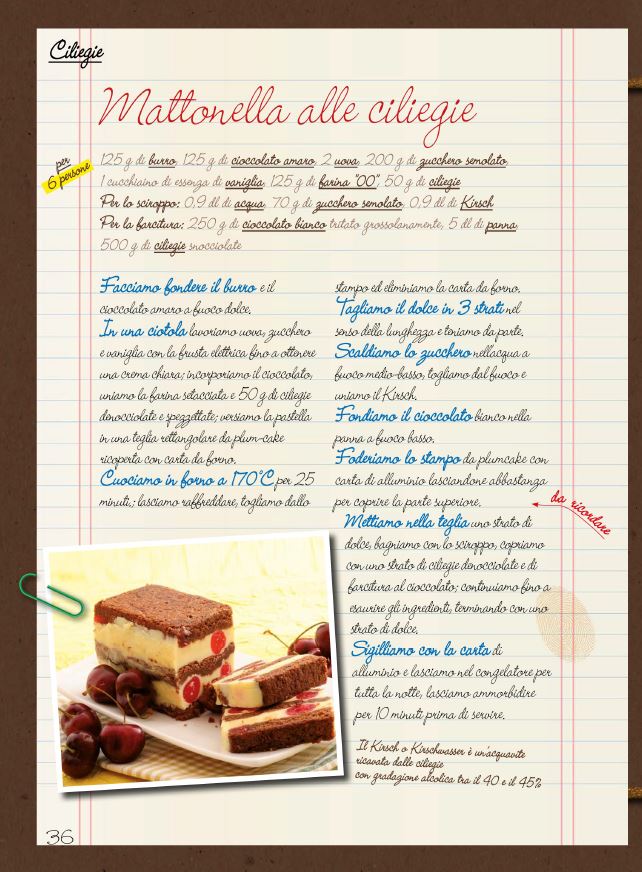 Ciliegie
Mattonella alle ciliegie
per
6 persone
125 g di burro, 125 g di cioccolato amaro, 2 uova, 200 g di zucchero semolato,
1 cucchiaino di essenza di vaniglia, 125 g di farina "00", 50 g di ciliegie
Per lo sciroppo: 0,9 dl di acqua, 70 g di zucchero semolato, 0,9 dl di Kirsch
Per la farcitura: 250 g di cioccolato bianco tritato grossolanamente, 5 dl di panna,
500 g di ciliegie snocciolate
Facciamo fondere il burro e il
cioccolato amaro a fuoco dolce.
In una ciotola lavoriamo uova, zucchero
e vaniglia con la frusta elettrica fino a ottenere
una crema chiara; incorporiamo il cioccolato,
uniamo la farina setacciata e 50 g di ciliegie
denocciolate e spezzettate; versiamo la pastella
in una teglia rettangolare da plum-cake
ricoperta con carta da forno.
Cuociamo in forno a 170°C per 25
minuti,; lasciamo raffreddare, togliamo dallo
stampo ed eliminiamo la carta da forno.
Tagliamo il dolce in 3 strati nel
senso della lunghezza e teniamo da parte.
Scaldiamo lo zucchero nell'acqua a
fuoco medio-basso, togliamo dal fuoco e
uniamo il Kirsch.
Fondiamo il cioccolato bianco nella
panna a fuoco basso.
Foderiamo lo stampo da plumcake con
carta di alluminio lasciandone abbastanza
per coprire la parte superiore.
da ricordare
Mettiamo nella teglia uno strato di
dolce, bagniamo con lo sciroppo, copriamo
con uno strato di ciliegie denocciolate e di
farcitura al cioccolato; continuiamo fino a
esaurire gli ingredienti, terminando con uno
strato di dolce.
Sigilliamo con la carta di
alluminio e lasciamo nel congelatore per
tutta la notte, lasciamo ammorbidire
per 10 minuti prima di servire.
Il Kirsch o Kirschwasser è un'acquavite
ricavata dalle ciliegie
con gradazione alcolica tra il 40 e il 45%
36